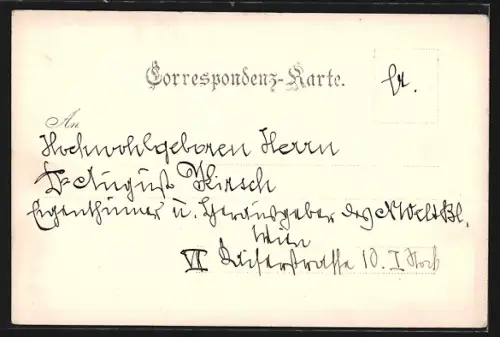 Correspondenz-Karte.
fr.
An
Hochwohlgeboren Herrn
Dr August Hirsch
Eigenthümer u. Herausgeber des N Welt Bl.
Wien
VII Kaiserstrasse 10. I Stock